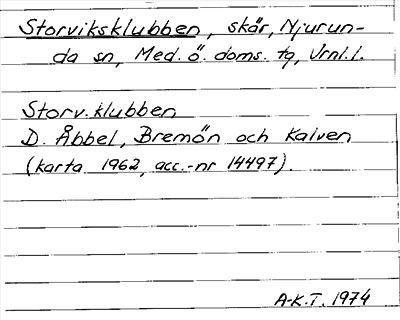 Storviksklubben, skär, Njurun-
da sn, Med. ö. doms. tg, Vrnl.l.
Storv.klubben
D. Åbbel, Bremön och Kalven
(karta 1962, acc.-nr 14497).
A-K.T. 1974